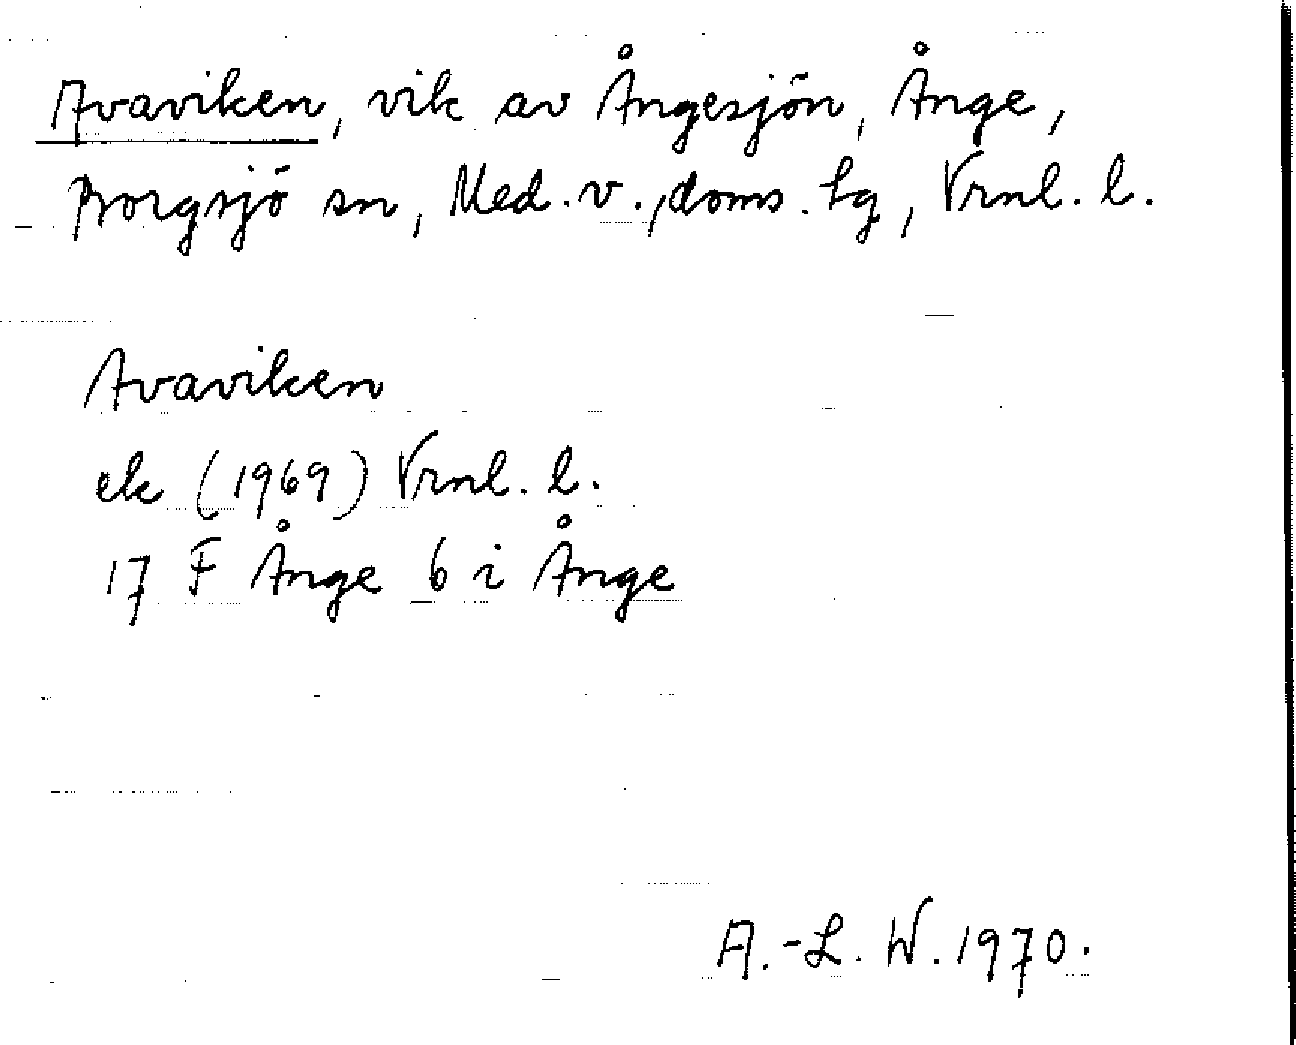 Avaviken, vik av Ångesjön, Ånge,
Borgsjö sn, Med. v., doms. hg, Vrnl. l.
Avaviken
ek (1969) Vrnl. l.
17 F Ånge 6 i Ånge
A.-L. W. 1970.